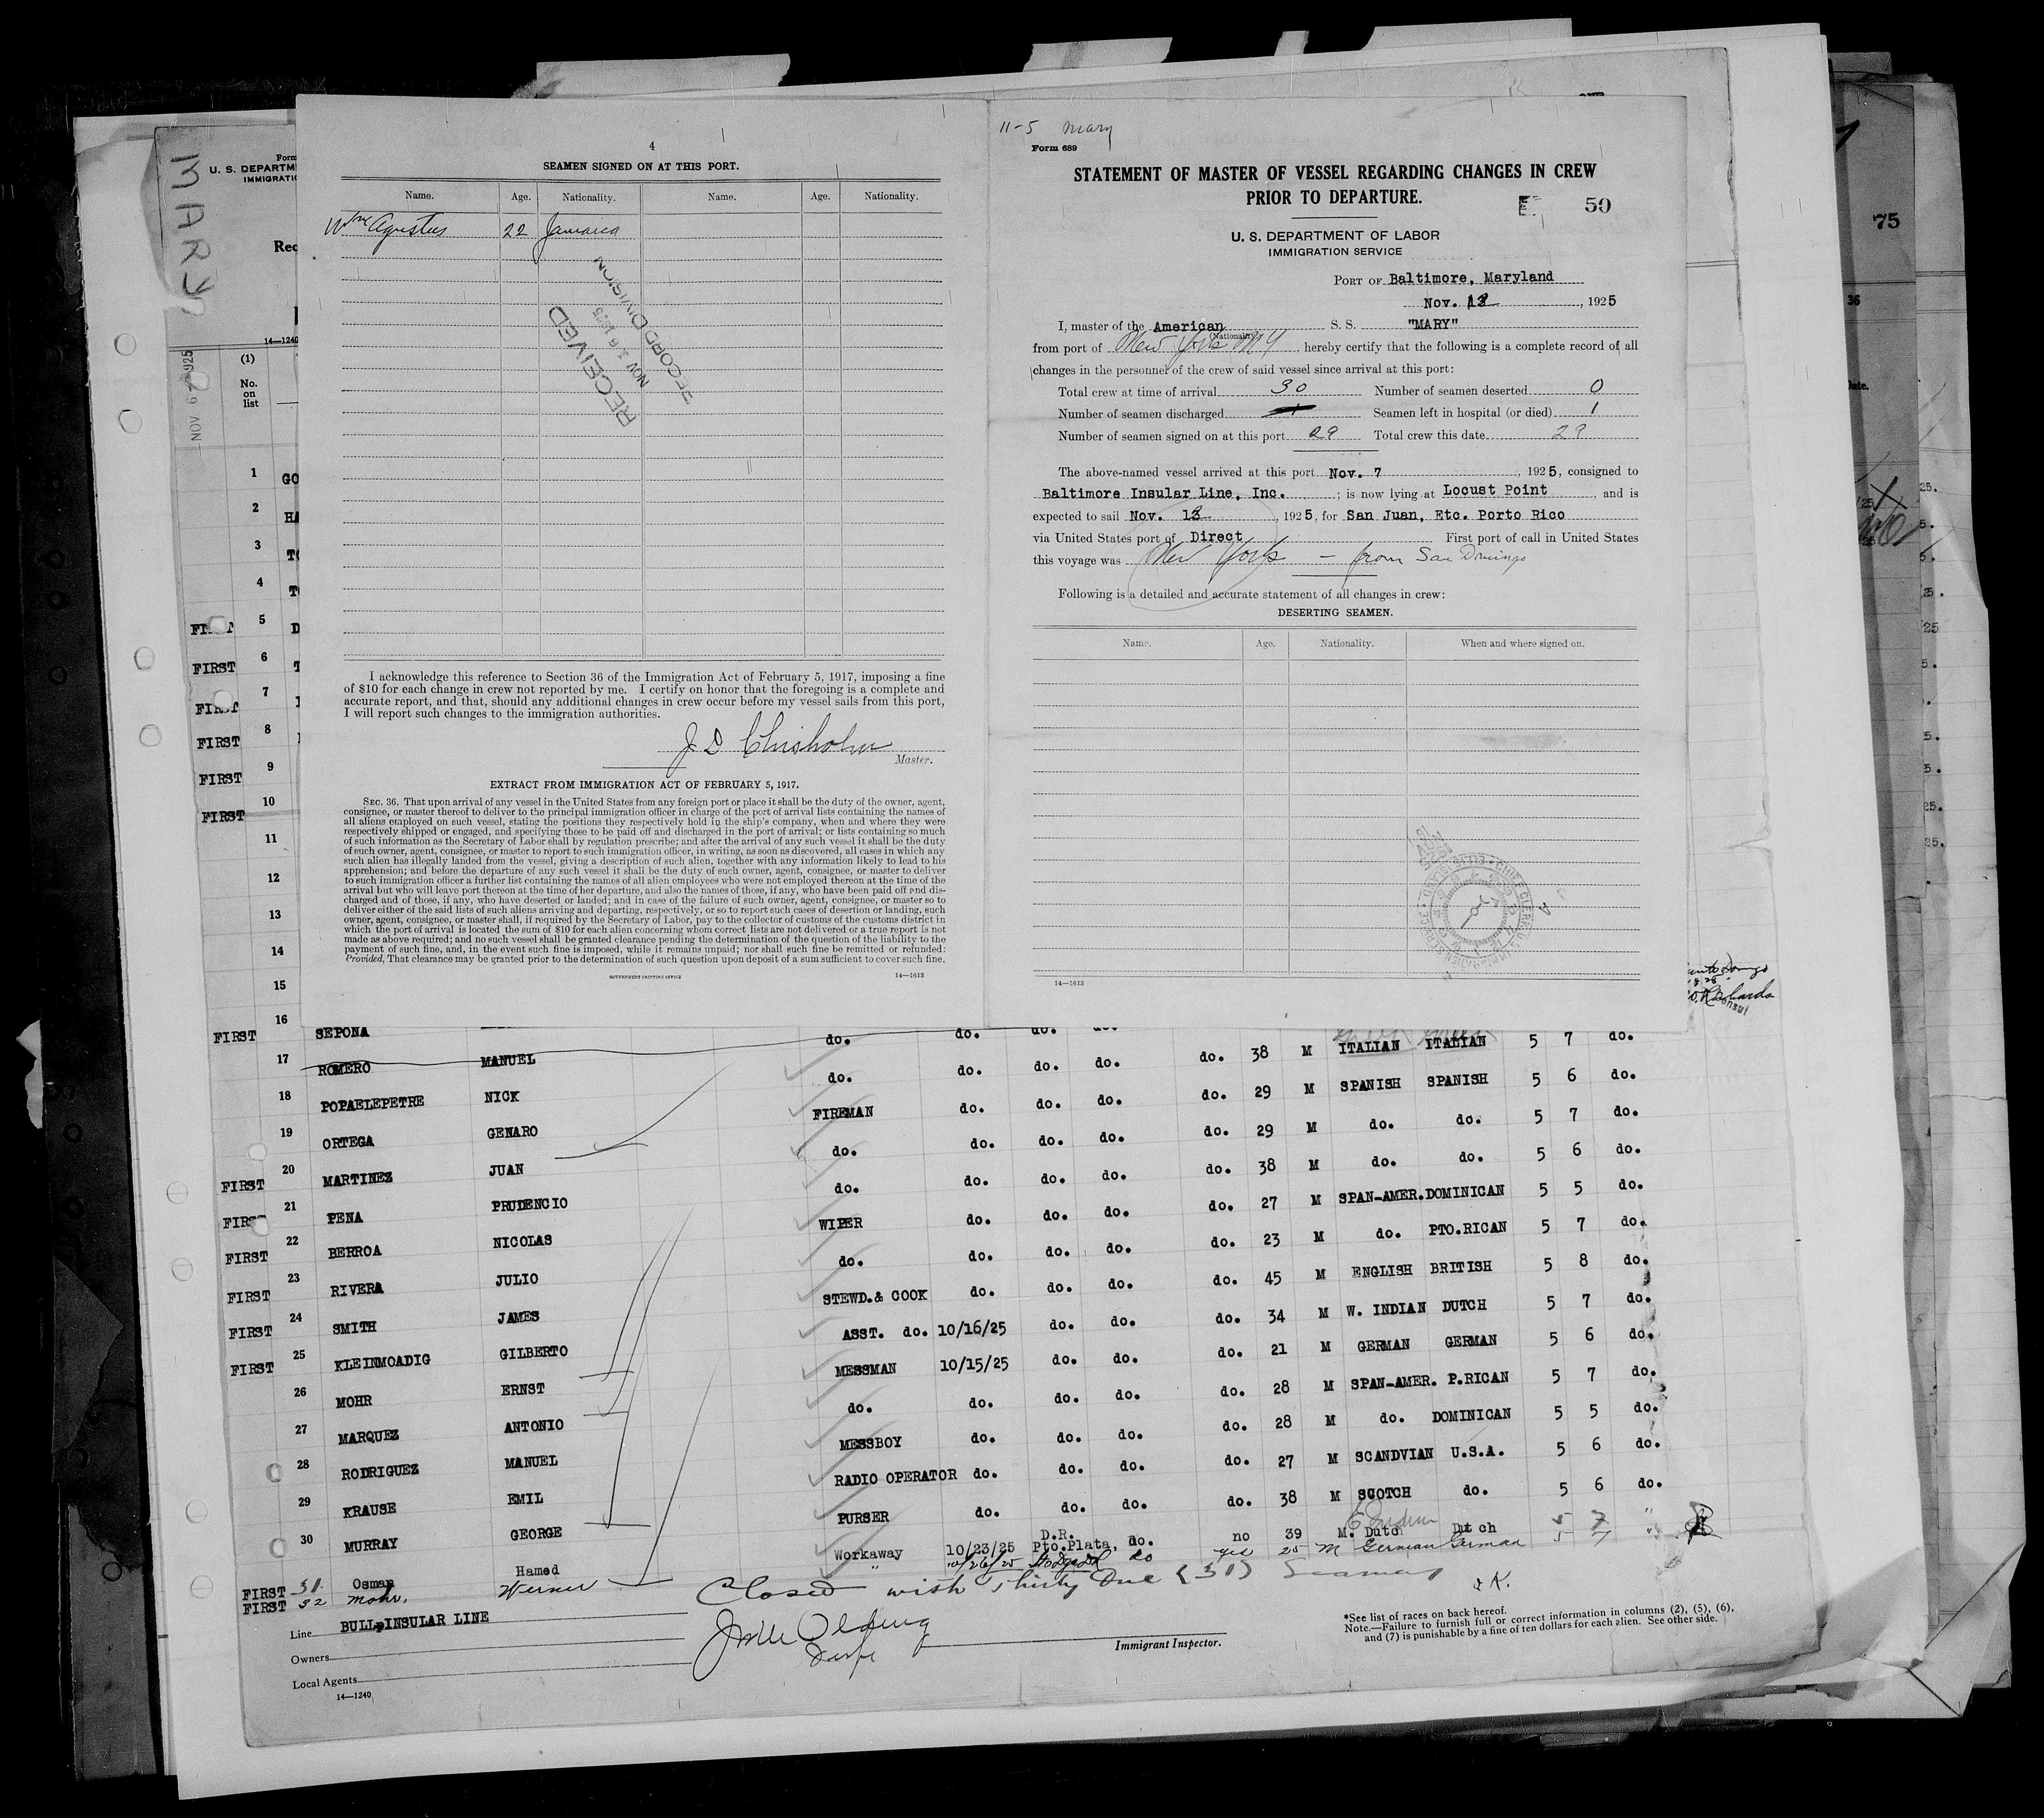 4
SEAMEN SIGNED ON AT THIS PORT.
Name. Age. Nationality. Name. Age. Nationality.
Wm Agustus 22 Jamaica
RECEIVED
NOV 1925
RECORD DIVISION
I acknowledge this reference to Section 36 of the Immigration Act of February 5, 1917, imposing a fine
of $10 for each change in crew not reported by me. I certify on honor that the foregoing is a complete and
accurate report, and that, should any additional changes in crew occur before my vessel sails from this port,
I will report such changes to the immigration authorities.
J D Chisholm
Master.
EXTRACT FROM IMMIGRATION ACT OF FEBRUARY 5, 1917.
SEC. 36. That upon arrival of any vessel in the United States from any foreign port or place it shall be the duty of the owner, agent,
consignee, or master thereof to deliver to the principal immigration officer in charge of the port of arrival lists containing the names of
all aliens employed on such vessel, stating the positions they respectively hold in the ship's company, when and where they were
respectively shipped or engaged, and specifying those to be paid off and discharged in the port of arrival; or lists containing so much
of such information as the Secretary of Labor shall by regulation prescribe; and after the arrival of any such vessel it shall be the duty
of such owner, agent, consignee, or master to report to such immigration officer, in writing, as soon as discovered, all cases in which any
such alien has illegally landed from the vessel, giving a description of such alien, together with any information likely to lead to his
apprehension; and before the departure of any such vessel it shall be the duty of such owner, agent, consignee, or master to deliver
to such immigration officer a further list containing the names of all alien employees who were not employed thereon at the time of the
arrival but who will leave port thereon at the time of her departure, and also the names of those, if any, who have been paid off and dis-
charged and of those, if any, who have deserted or landed; and in case of the failure of such owner, agent, consignee, or master so to
deliver either of the said lists of such aliens arriving and departing, respectively, or so to report such cases of desertion or landing, such
owner, agent, consignee, or master shall, if required by the Secretary of Labor, pay to the collector of customs of the customs district in
which the port of arrival is located the sum of $10 for each alien concerning whom correct lists are not delivered or a true report is not
made as above required; and no such vessel shall be granted clearance pending the determination of the question of the liability to the
payment of such fine, and, in the event such fine is imposed, while it remains unpaid; nor shall such fine be remitted or refunded:
Provided, That clearance may be granted prior to the determination of such question upon deposit of a sum sufficient to cover such fine.
GOVERNMENT PRINTING OFFICE 14—1613
11-5 Mary
Form 689
STATEMENT OF MASTER OF VESSEL REGARDING CHANGES IN CREW
PRIOR TO DEPARTURE.
50
U. S. DEPARTMENT OF LABOR
IMMIGRATION SERVICE
PORT OF Baltimore, Maryland
Nov. 13, 1925
I, master of the American S. S. "MARY"
(Nationality)
from port of New York NY, hereby certify that the following is a complete record of all
changes in the personnel of the crew of said vessel since arrival at this port:
Total crew at time of arrival 30 Number of seamen deserted 0
Number of seamen discharged Seamen left in hospital (or died) 1
Number of seamen signed on at this port 29 Total crew this date 29
The above-named vessel arrived at this port Nov. 7, 1925, consigned to
Baltimore Insular Line, Inc.; is now lying at Locust Point, and is
expected to sail Nov. 13, 1925, for San Juan, Etc. Porto Rico
via United States port of Direct First port of call in United States
this voyage was New York - from San Domingo
Following is a detailed and accurate statement of all changes in crew:
DESERTING SEAMEN.
Name. Age. Nationality. When and where signed on.
14—1613
MARY
Form
U. S. DEPARTM
IMMIGRATIO
Req
14—1240
(1)
No.
on
list
NOV 9 1925
75
36
1 GO
2 HA
3 TO
4 TO
FIRST 5 D
FIRST 6 T
FIRST 7
FIRST 8
FIRST 9
FIRST 10
11
12
13
14
15
FIRST 16 SEPONA do. do. do. do. 38 M ITALIAN ITALIAN 5 7 do.
17 ROMERO MANUEL do. do. do. do. do. 29 M SPANISH SPANISH 5 6 do.
18 POPAELEPETRE NICK FIREMAN do. do. do. do. 29 M do. do. 5 7 do.
19 ORTEGA GENARO do. do. do. do. do. 38 M do. do. 5 6 do.
FIRST 20 MARTINEZ JUAN do. do. do. do. do. 27 M SPAN-AMER. DOMINICAN 5 5 do.
FIRST 21 PENA PRUDENCIO WIPER do. do. do. do. 23 M do. PTO.RICAN 5 7 do.
FIRST 22 BERROA NICOLAS do. do. do. do. do. 45 M ENGLISH BRITISH 5 8 do.
FIRST 23 RIVERA JULIO STEWD.& COOK do. do. do. do. 34 M W. INDIAN DUTCH 5 7 do.
FIRST 24 SMITH JAMES ASST. do. 10/16/25 do. do. do. 21 M GERMAN GERMAN 5 6 do.
FIRST 25 KLEINMOADIG GILBERTO MESSMAN 10/15/25 do. do. do. 28 M SPAN-AMER. P.RICAN 5 7 do.
26 MOHR ERNST do. do. do. do. do. 28 M do. DOMINICAN 5 5 do.
27 MARQUEZ ANTONIO MESSBOY do. do. do. do. 27 M SCANDVIAN U.S.A. 5 6 do.
28 RODRIGUEZ MANUEL RADIO OPERATOR do. do. do. do. 38 M SCOTCH do. 5 6 do.
29 KRAUSE EMIL PURSER do. do. do.
30 MURRAY GEORGE
FIRST 31 Osman Hamed Workaway 10/23/25 D.R. Pto.Plata, do. no 39 M. Dutch Dutch 5 7 "
FIRST 32 Mohr, Werner " 10/26/25 do yes 25 M German German 5 7 "
Closed with Thirty One (31) Seamen
Line BULL INSULAR LINE
Owners
Local Agents
14—1240
Immigrant Inspector.
*See list of races on back hereof.
Note.—Failure to furnish full or correct information in columns (2), (5), (6),
and (7) is punishable by a fine of ten dollars for each alien. See other side.